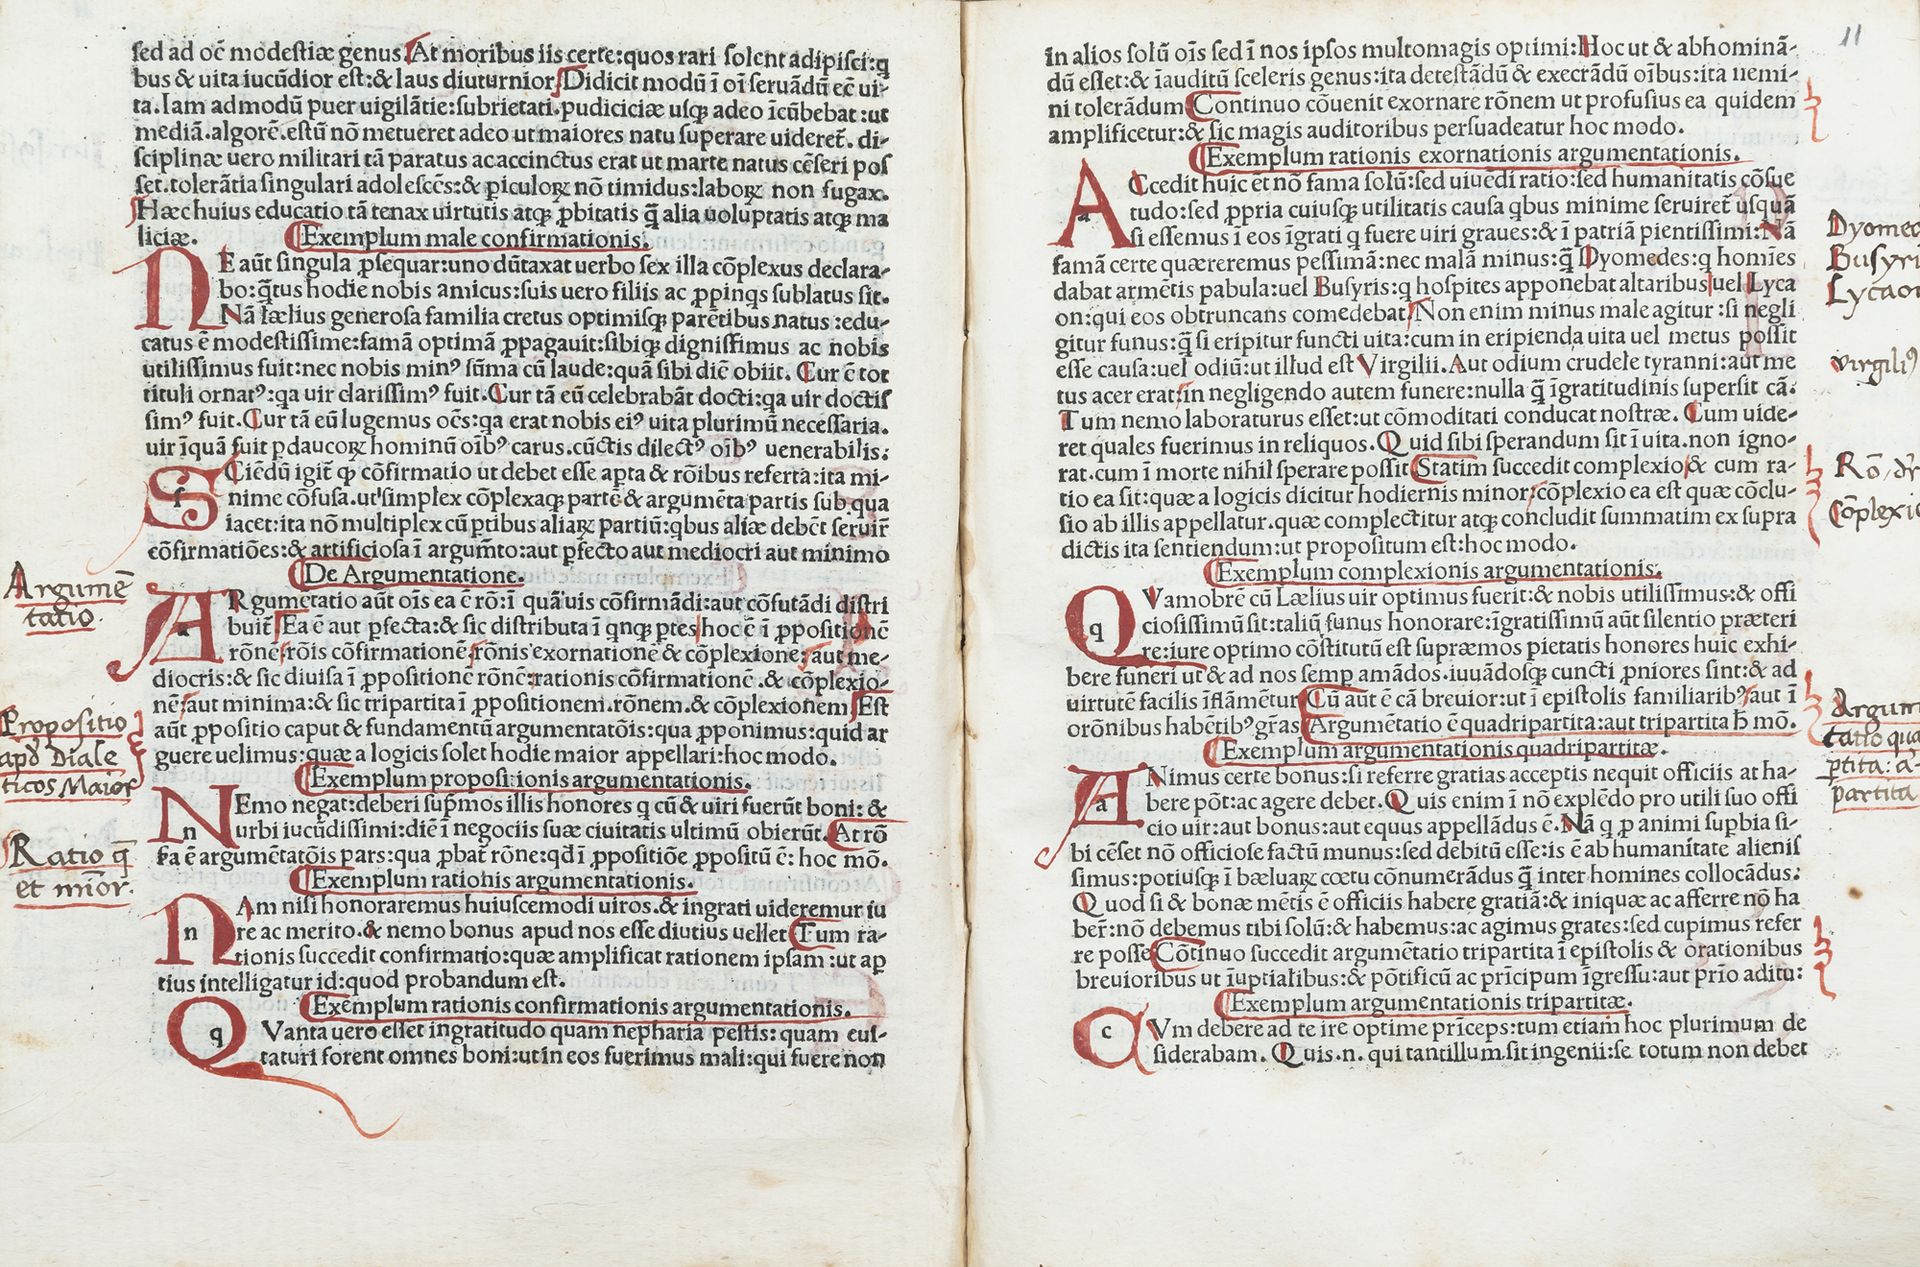 sed ad oc̄ modestiæ genus. At moribus iis certe: quos rari solent adipisci: q
bus & uita iucūdior est: & laus diuturnior. Didicit modū ī oī seruādū ec̄ ui-
ta. Iam ad modū puer uigilātie: subrietati. pudiciciæ usq; adeo īcūbebat: ut
mediā. algorē. estū nō metueret adeo ut maiores natu superare uideret̄. di-
sciplinæ uero militari tā paratus ac accinctus erat ut marte natus cēseri pos
set. tolerātia singulari adolescēs: & ꝑiculoꝝ nō timidus: laboꝝ non fugax.
Hæc huius educatio tā tenax uirtutis atq; ꝓbitatis q̄ alia uoluptatis atq; ma
liciæ.
Exemplum male confirmationis.
NE aūt singula ꝓsequar: uno dūtaxat uerbo sex illa cōplexus declara-
bo: q̄tus hodie nobis amicus: suis uero filiis ac ꝓpinqs sublatus sit.
Nā Lælius generosa familia cretus optimisq; parētibus natus: edu-
catus ē modestissime: famā optimā ꝓpagauit: sibiq; dignissimus ac nobis
utilissimus fuit: nec nobis minꝰ sūma cū laude: quā sibi diē obiit. Cur ē tot
tituli ornatꝰ: qa uir clarissimꝰ fuit. Cur tā eū celebrabāt docti: qa uir doctis
simꝰ fuit. Cur tā eū lugemus oēs: qa erat nobis eiꝰ uita plurimū necessaria.
uir īquā fuit ꝑdaucoꝝ hominū oībꝰ carus. cūctis dilectꝰ oībꝰ uenerabilis.
SCiēdū igit̄ ꝙ cōfirmatio ut debet esse apta & rōibus referta: ita mi-
nime cōfusa. ut simplex cōplexaq; partē & argumēta partis sub qua
iacet: ita nō multiplex cū ꝑtibus aliaꝝ partiū: qbus aliæ debēt seruir̄
cōfirmatiōes: & artificiosa ī argum̄to: aut ꝑfecto aut mediocri aut minimo
De Argumentatione.
Argumē
tatio.
ARgumētatio aūt oīs ea ē rō: ī quāuis cōfirmādi: aut cōfutādi distri
buit̄. Ea ē aut ꝑfecta: & sic distributa ī qnq; ꝑtes hoc ē ī ꝓpositionē
rōnē: rōis cōfirmationē. rōnis exornationē & cōplexionē: aut me-
diocris: & sic diuisa ī ꝓpositionē rōnē: rationis cōfirmationē. & cōplexio-
nē: aut minima: & sic tripartita ī ꝓpositionem. rōnem. & cōplexionem. Est
aūt ꝓpositio caput & fundamentū argumentatōis: qua ꝓponimus: quid ar
guere uelimus: quæ a logicis solet hodie maior appellari: hoc modo.
Propositio
apd Diale
ticos Maior
Exemplum propositionis argumentationis.
NEmo negat: deberi sup̄mos illis honores q cū & uiri fuerūt boni: &
urbi iucūdissimi: diē ī negociis suæ ciuitatis ultimū obierūt. At rō
ea ē argumētatōis pars: qua ꝓbat̄ rōne: qd ī ꝓpositiōe ꝓpositū ē: hoc mō.
Ratio q̄
et minor.
Exemplum rationis argumentationis.
NAm nisi honoraremus huiuscemodi uiros. & ingrati uideremur iu
re ac merito. & nemo bonus apud nos esse diutius uellet. Tum ra-
tionis succedit confirmatio: quæ amplificat rationem ipsam: ut ap
tius intelligatur id: quod probandum est.
Exemplum rationis confirmationis argumentationis.
QVanta uero esset ingratitudo quam nepharia pestis: quam eui-
taturi forent omnes boni: ut in eos fuerimus mali: qui fuere non
11
in alios solū oīs sed ī nos ipsos multomagis optimi: Hoc ut & abhominā-
dū esset: & īauditū sceleris genus: ita detestādū & execrādū oībus: ita nemi-
ni tolerādum. Continuo cōuenit exornare rōnem ut profusius ea quidem
amplificetur: & sic magis auditoribus persuadeatur hoc modo.
Exemplum rationis exornationis argumentationis.
ACcedit huic et̄ nō fama solū: sed uiuēdi ratio: sed humanitatis cōsue
tudo: sed ꝓpria cuiusq; utilitatis causa qbus minime seruiret̄ usquā
si essemus ī eos īgrati q fuere uiri graues: & ī patriā pientissimi: Nā
famā certe quæreremus pessimā: nec malā minus: q̄ Dyomedes: q homīes
dabat armētis pabula: uel Busyris: q hospites apponebat altaribus uel Lyca
on: qui eos obtruncans comedebat. Non enim minus male agitur: si negli
gitur funus: q̄ si eripitur functi uita: cum in eripienda uita uel metus possit
esse causa: uel odiū: ut illud est Virgilii. Aut odium crudele tyranni: aut me
tus acer erat: in negligendo autem funere: nulla q̄ īgratitudinis supersit cā.
Tum nemo laboraturus esset: ut cōmoditati conducat nostræ. Cum uide-
ret quales fuerimus in reliquos. Quid sibi sperandum sit ī uita. non igno-
rat. cum ī morte nihil sperare possit. Statim succedit complexio & cum ra-
tio ea sit: quæ a logicis dicitur hodiernis minor: cōplexio ea est quæ cōclu-
sio ab illis appellatur. quæ complectitur atq; concludit summatim ex supra
dictis ita sentiendum: ut propositum est: hoc modo.
Dyomed
Busyri
Lycaon
virgiliꝰ
Cōplexio
Exemplum complexionis argumentationis.
QVamobrē cū Lælius uir optimus fuerit: & nobis utilissimus: & offi
ciosissimū sit: taliū funus honorare: īgratissimū aūt silentio præteri
re: iure optimo cōstitutū est supræmos pietatis honores huic exhi-
bere funeri ut & ad nos semꝑ amādos. iuuādosq; cuncti ꝓniores sint: & ad
uirtutē facilis īflāmētur. Cū aūt ē cā breuior: ut ī epistolis familiaribꝰ: aut ī
orōnibus habētibꝰ gr̄as. Argumētatio ē quadripartita: aut tripartita h̄ mō.
Argum
tatio qua
ꝑtita: a-
partita
Exemplum argumentationis quadripartitæ.
ANimus certe bonus: si referre gratias acceptis nequit officiis at ha-
bere pōt: ac agere debet. Quis enim ī nō explēdo pro utili suo offi
cio uir: aut bonus: aut equus appellādus ē. Nā q ꝑ animi supbia si-
bi cēset nō officiose factū munus: sed debitū esse: is ē ab humanitate alienis
simus: potiusq; ī bæluaꝝ cœtu cōnumerādus q̄ inter homines collocādus.
Quod si & bonæ mētis ē officiis habere gratiā: & iniquæ ac afferre nō ha
ber̄: nō debemus tibi solū: & habemus: ac agimus grates: sed cupimus refer
re posse. Cōtinuo succedit argumētatio tripartita ī epistolis & orationibus
breuioribus ut īuptialibus: & pōtificū ac prīcipum īgressu: aut prīo aditu:
Exemplum argumentationis tripartitæ.
CVm debere ad te ire optime prīceps: tum etiam hoc plurimum de
siderabam. Quis. n. qui tantillum sit ingenii: se totum non debet